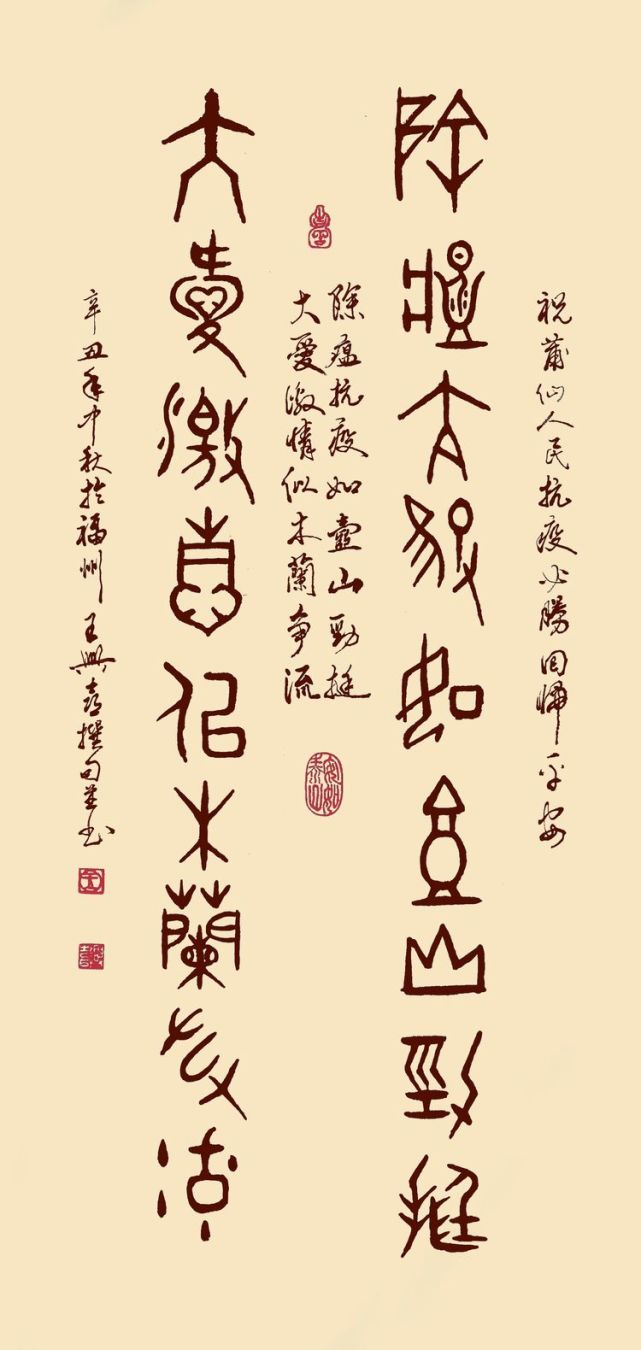 祝莆仙人民抗疫必勝回歸平安
除瘟抗疫如壺山勁挺
除瘟抗疫如壺山勁挺
大愛激情似木蘭爭流
大愛激情似木蘭爭流
辛丑年中秋於福州王興喜撰句並書